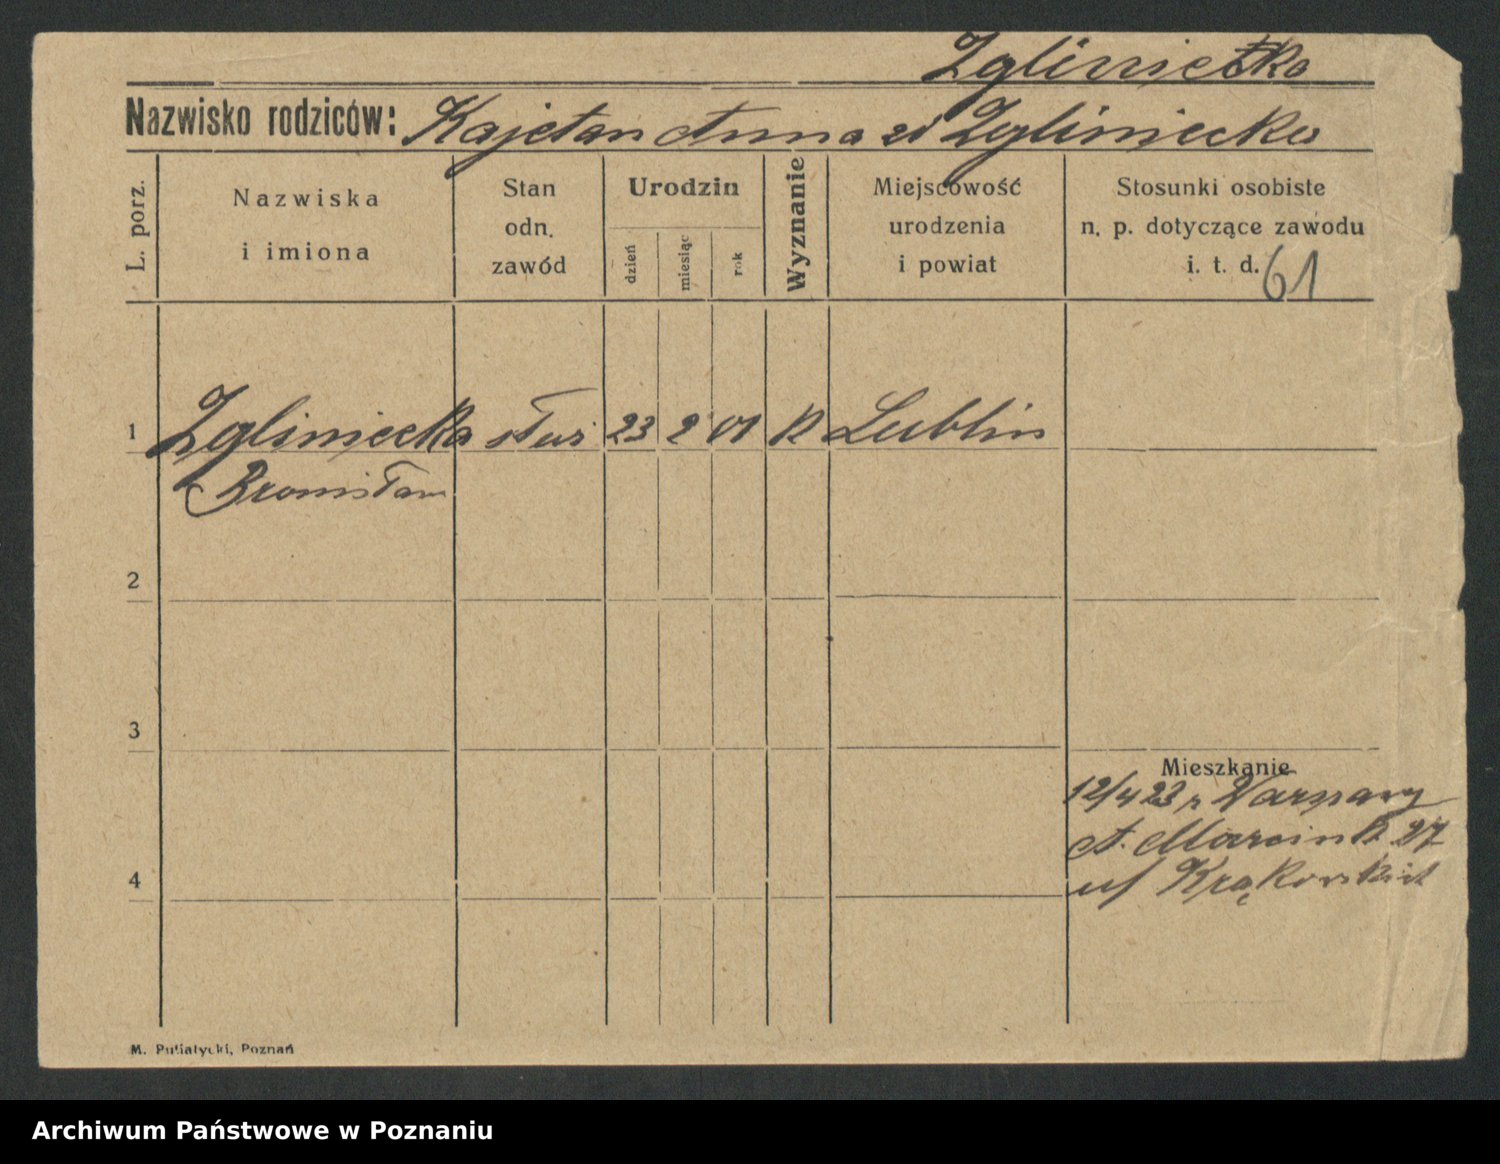 Zgliniecka
Nazwisko rodziców: Kajetan Anna zd Zgliniecka
L. porz.
Nazwiska
i imiona
Stan
odn.
zawód
Urodzin
dzień
miesiąc
rok
Wyznanie
Miejscowość
urodzenia
i powiat
Stosunki osobiste
n. p. dotyczące zawodu
i. t. d. 61
1 Zgliniecka służ 23 2 01 R Lublin
Bronisława
2
3
Mieszkanie
12/4 23 z Warszawy
A. Marcink 27
4
M. Putiatycki, Poznań
Archiwum Państwowe w Poznaniu